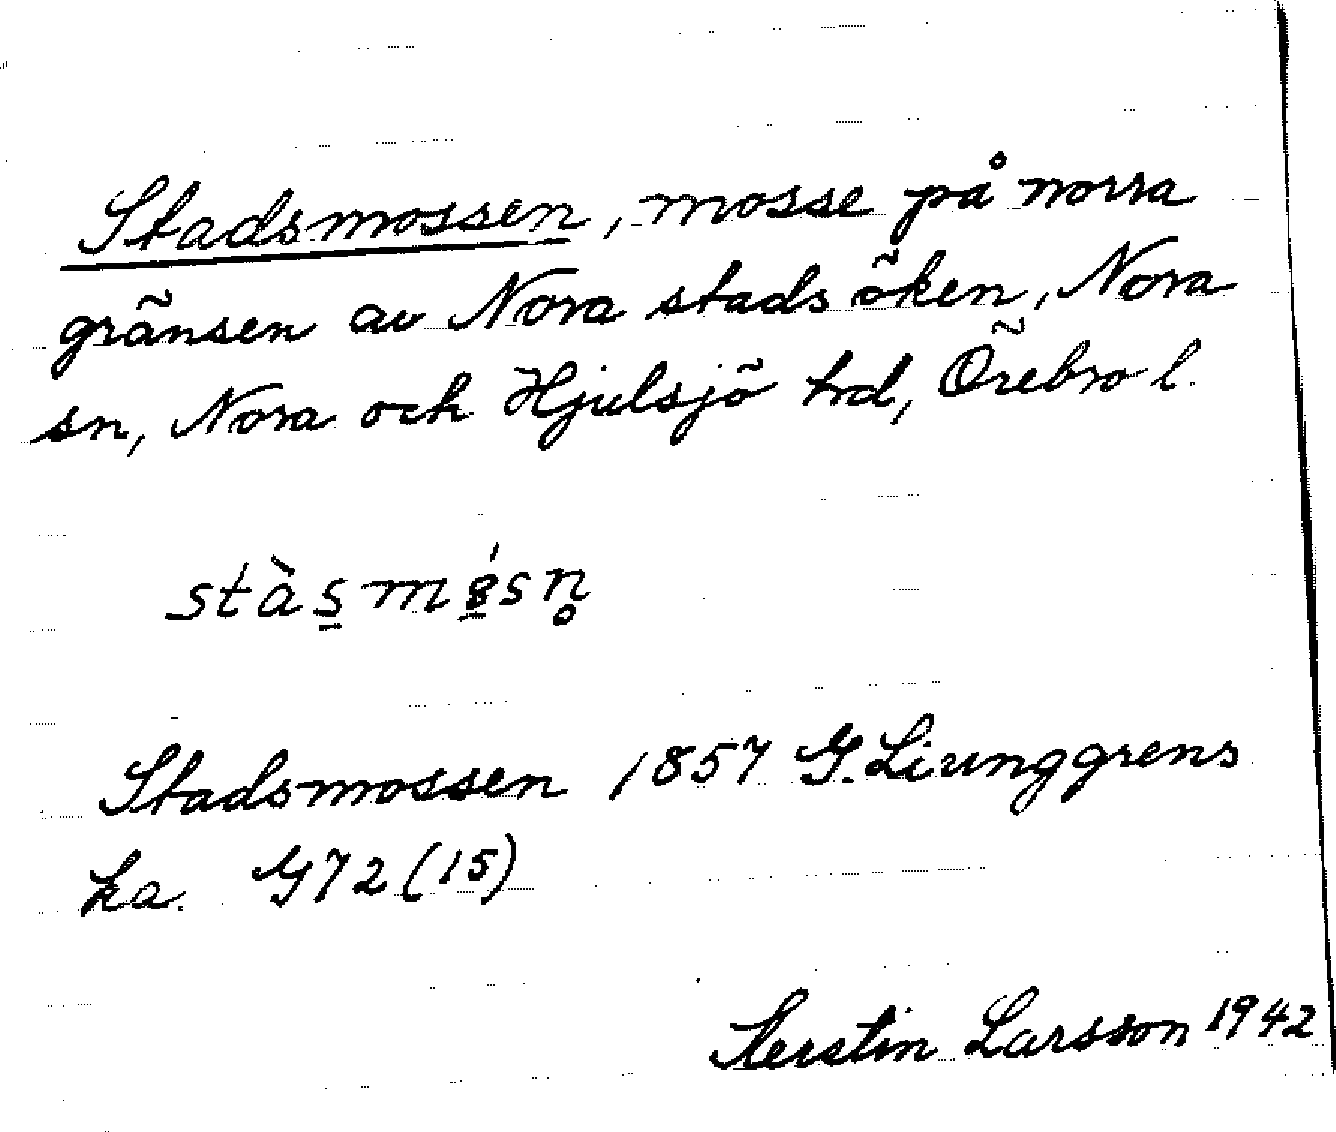 Stadsmossen, mosse på norra
gränsen av Nora stads öken, Nora
sn, Nora och Hjulsjö hd, Örebro l.
stàs̠mó̠sn̥
Stadsmossen 1857 G. Liunggrens
ka. G72(15)
Kerstin Larsson 1942